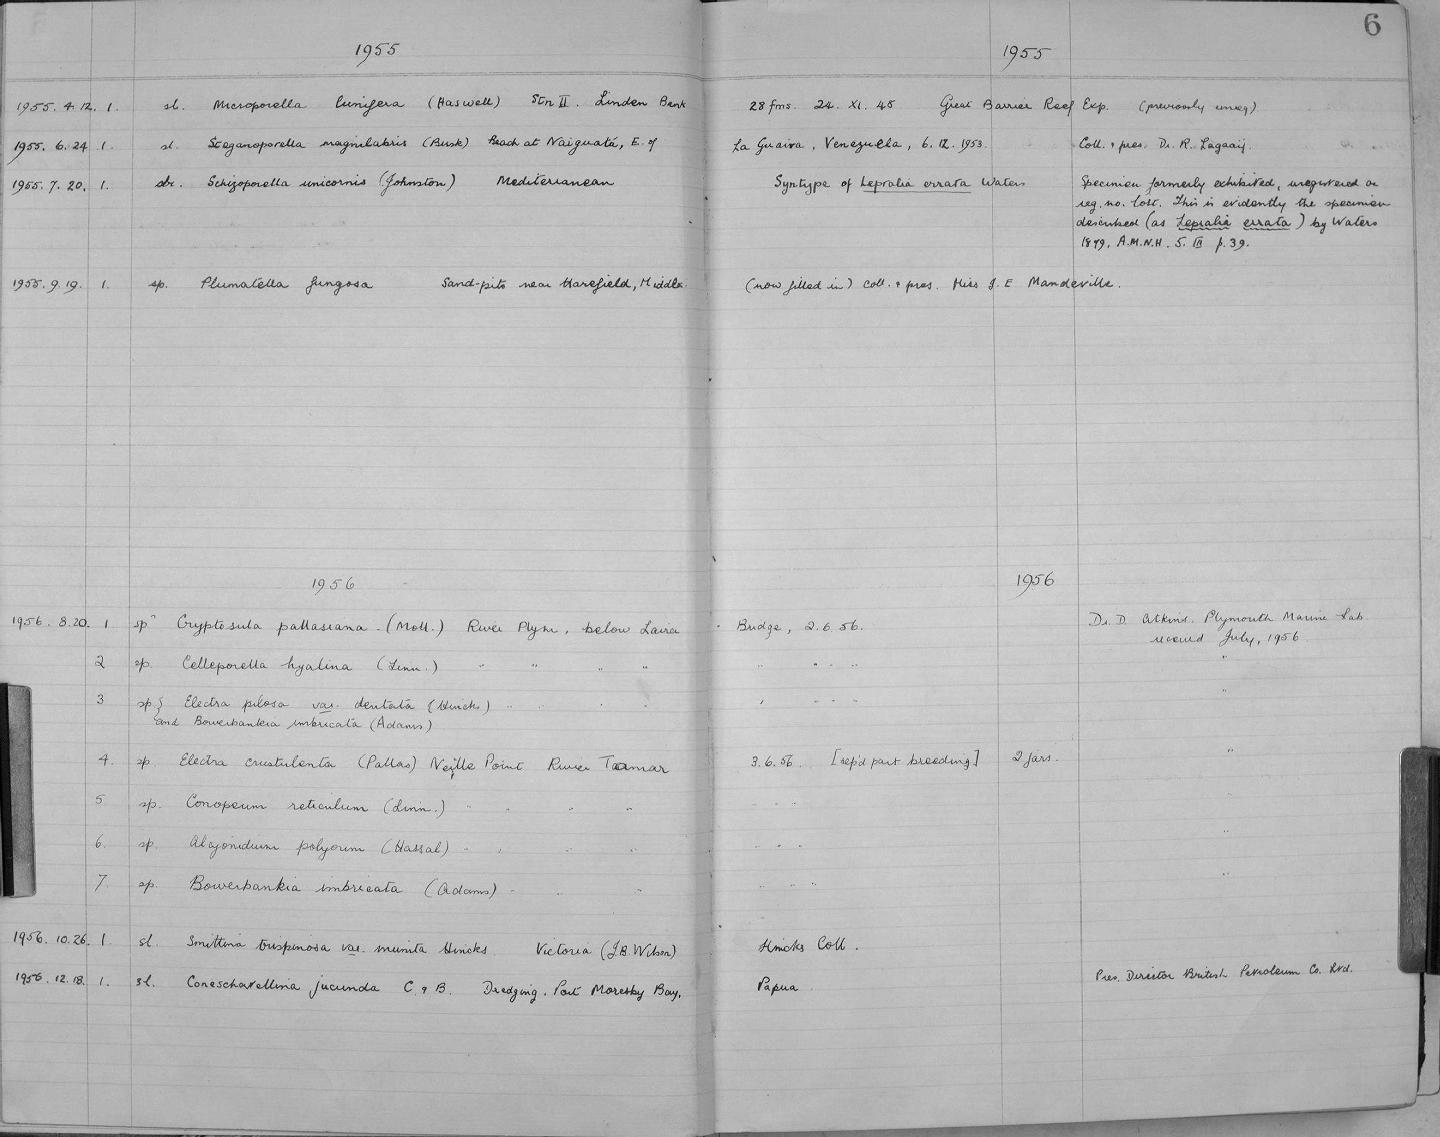 6
1955 1955
1955. 4. 12. 1. sl. Microporella lunifera (Haswell) Stn II. Linden Bank 28 fms. 24. XI. 45 Great Barrier Reef Exp. (previously unreg)
1955. 6. 24 1. sl. Steganoporella magnilabris (Busk) Beach at Naiguatá, E. of La Guaira, Venezuella, 6. 12. 1953. Coll. & pres. Dr. R. Lagaaij.
1955. 7. 20. 1. Schizoporella unicornis (Johnston) Mediterranean Syntype of Lepralia errata Waters Specimen formerly exhibited, unregistered or
reg. no. lost. This is evidently the specimen
described (as Lepralia errata) by Waters
1879, A.M.N.H. 5. III p. 39.
1955. 9. 19. 1. sp. Plumatella fungosa Sand-pits near Harefield, Middx. (now filled in) Coll. & pres. Miss J. E Mandeville.
1956 1956
1956. 8. 20. 1 spn Cryptosula pallasiana (Moll.) River Plym, below Laira Bridge, 2. 6. 56. Dr. D. Atkins. Plymouth Marine Lab
received July, 1956
2 sp. Celleporella hyalina (Linn.) " " " " " " " " "
3 sp. } Electra pilosa var. dentata (Hincks) " " " " " " " "
and Bowerbankia imbricata (Adams)
4. sp. Electra crustulenta (Pallas) Neille Point River Tamar 3. 6. 56. [sep'd part breeding] 2 jars. "
5 sp. Conopeum reticulum (Linn.) " " " " " " "
6. sp. Alcyonidium polyoum (Hassal) " " " " " " " "
7 sp. Bowerbankia imbricata (Adams) " " " " " " "
1956. 10. 26. 1. sl. Smittina trispinosa var. munita Hincks Victoria (J. B. Wilson) Hincks Coll.
1956. 12. 18. 1. sl. Coneschavellina jucunda C. & B. Dredging, Port Moresby Bay, Papua Pres. Director British Petroleum Co. Ltd.